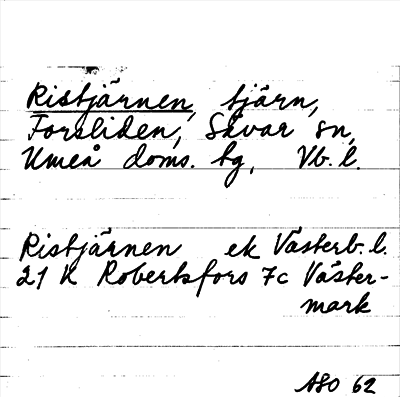 Ristjärnen, tjärn,
Forsliden, Sävar sn,
Umeå doms. tg, Vb. l.
Ristjärnen ek Västerb. l.
21 K Robertsfors 7c Väster-
mark
ASO 62